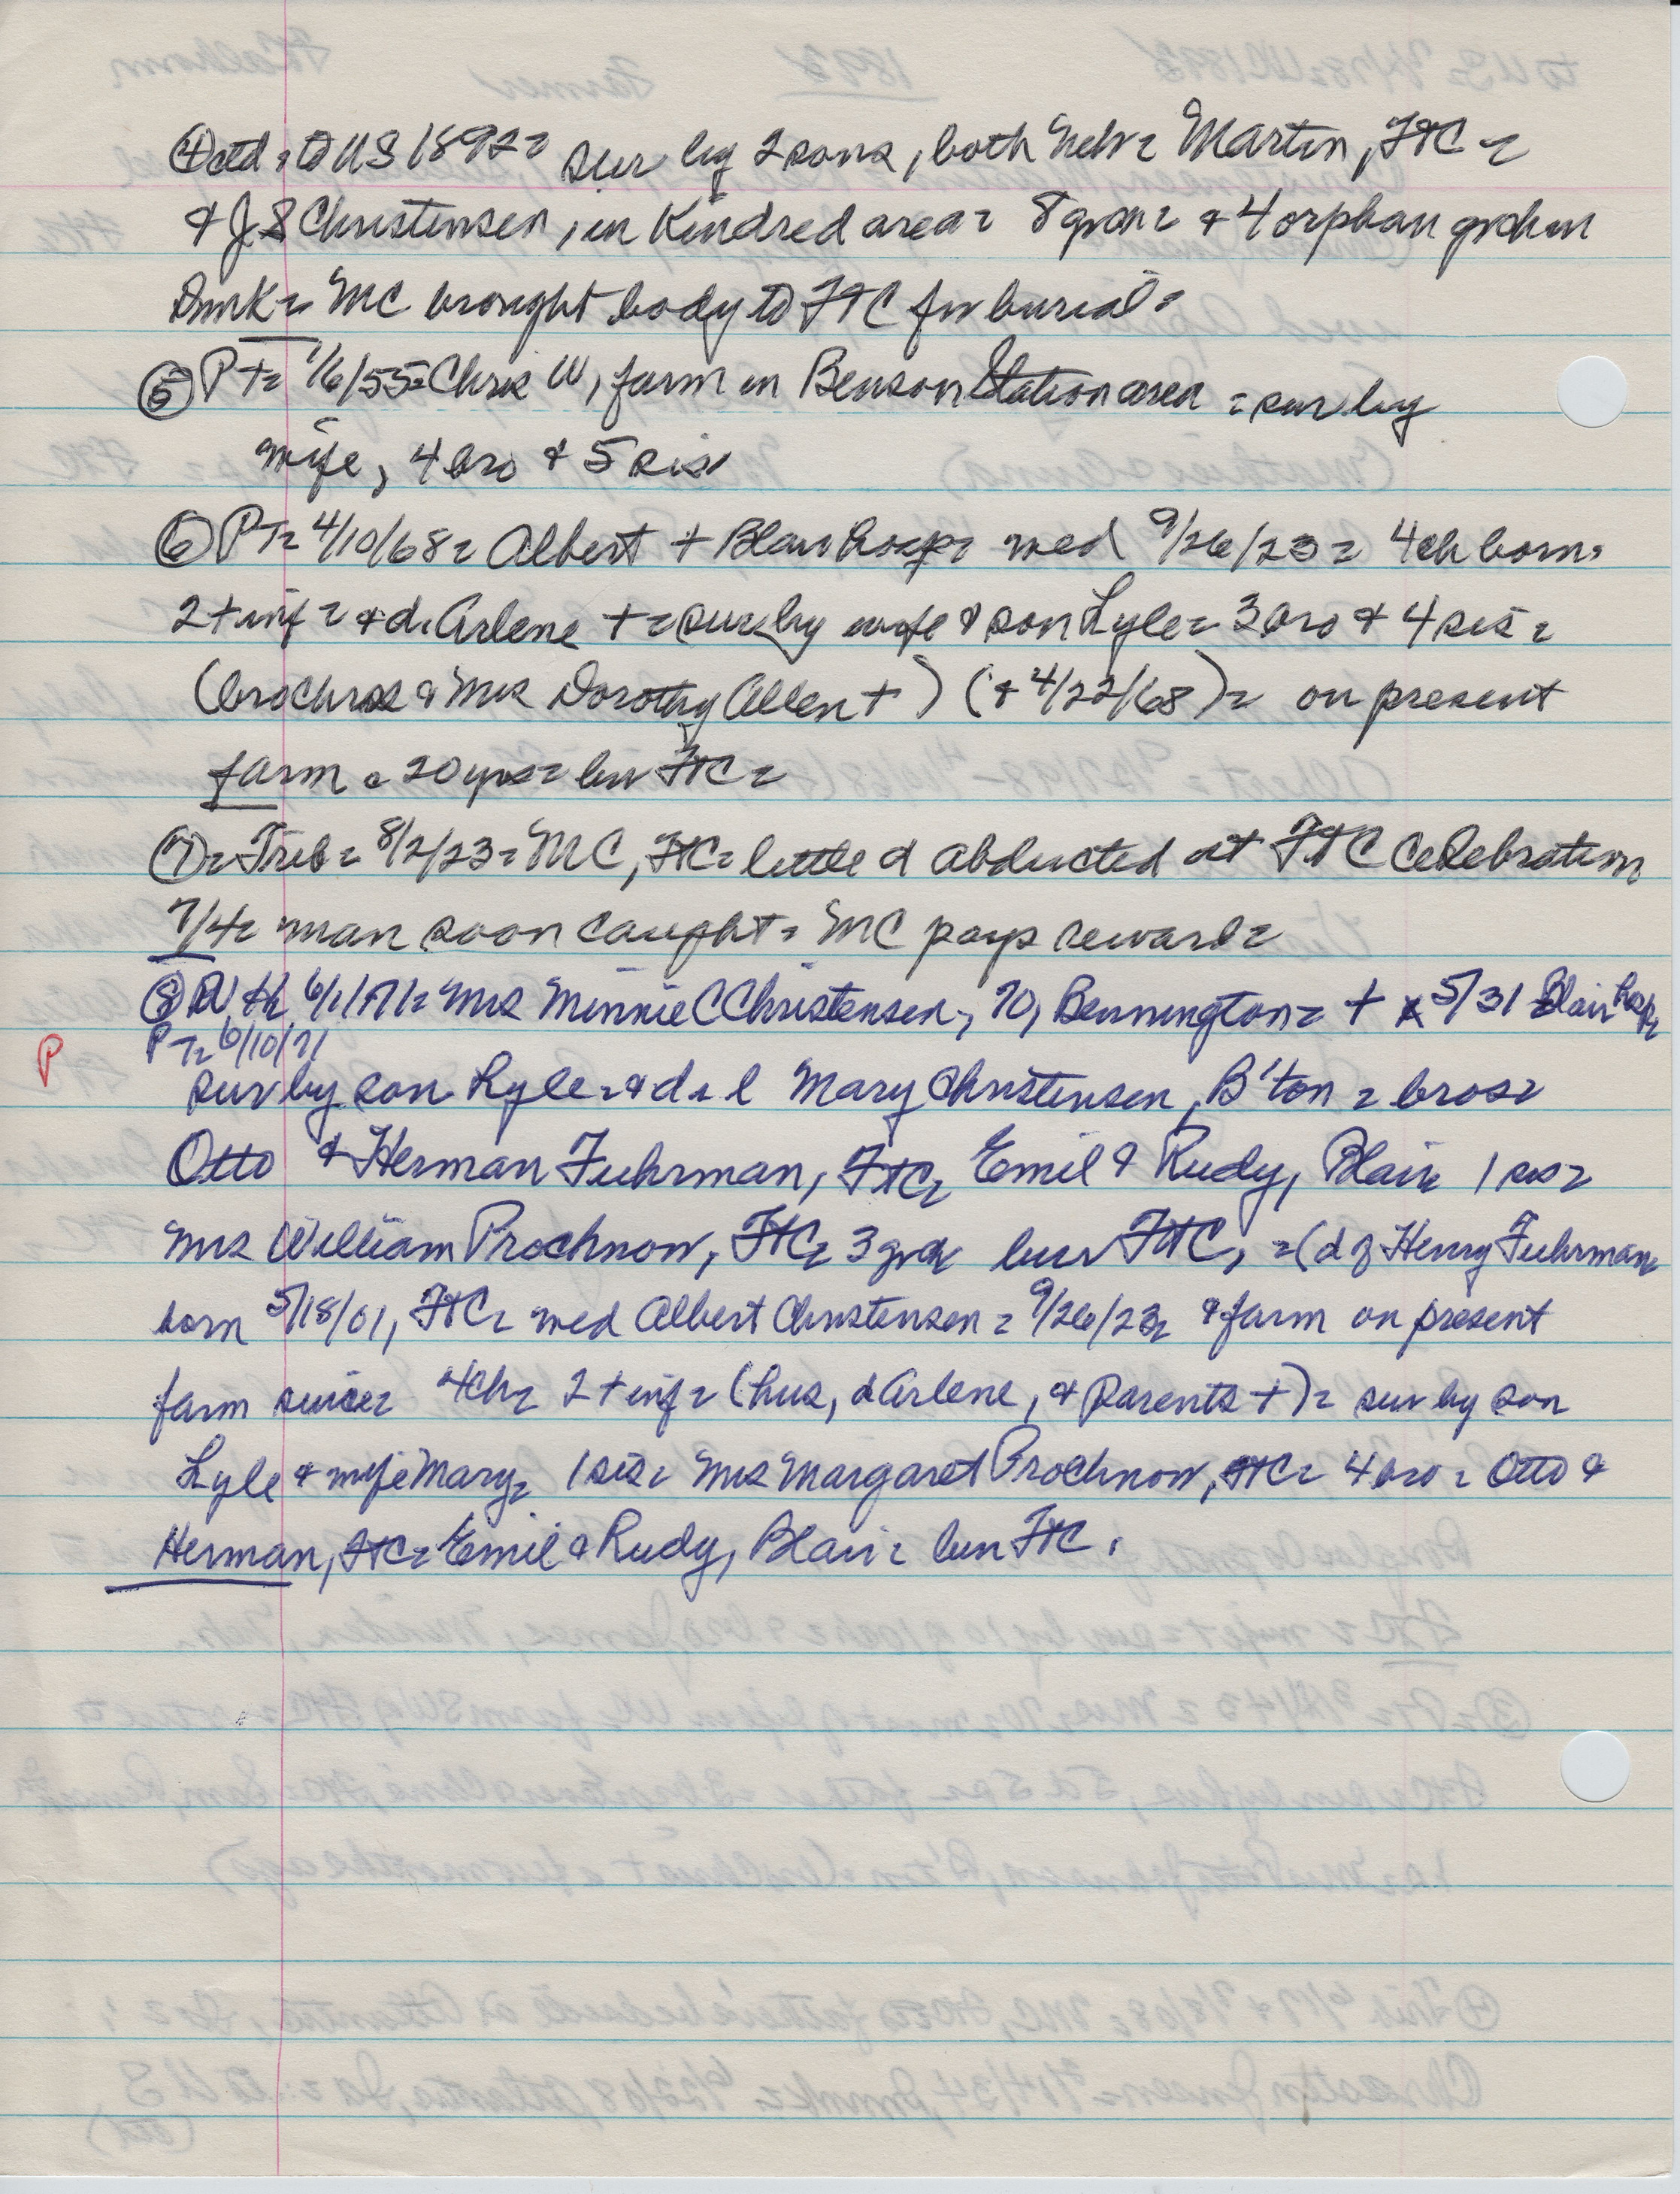 ④ ctd = to US 1892 = sur by 2 sons, both Neb = Martin, FtC =
& J S Christensen, in Kindred area = 8 grch = & 4 orphan grch in
Dmk = MC brought body to FtC for burial =
⑤ PT = 1/6/55 = Chris W, farm in Benson Station area = sur by
wife, 4 bro & 5 sis
⑥ PT = 4/10/68 = Albert + Blair hosp = med 9/26/23 = 4 ch born,
2 + inf = & d. Arlene + = sur by wife & son Lyle = 3 bro & 4 sis =
(bro Chris & Mrs Dorothy Allen +) (+ 4/22/68) = on present
farm 20 yrs = bur FtC =
⑦ = Trib = 8/2/23 = MC, FtC = little d abducted at FtC celebration
7/4 = man soon caught = MC pays reward =
⑧ W H 6/1/71 = Mrs Minnie C Christensen, 70, Bennington = + 5/31 Blair hosp =
P PT = 6/10/71
sur by son Lyle = & d = l Mary Christensen, B'ton = bros =
Otto & Herman Fuhrman, FtC = Emil & Rudy, Blair 1 sis =
Mrs William Prochnow, FtC = 3 grch bur FtC, = (d of Henry Fuhrman
born 5/18/01, FtC = med Albert Christensen = 9/26/23 = & farm on present
farm since = 4 ch = 2 + inf = (hus, d Arlene, & parents +) = sur by son
Lyle & wife Mary = 1 sis = Mrs Margaret Prochnow, FtC = 4 bro = Otto &
Herman, FtC = Emil & Rudy, Blair = bur FtC.